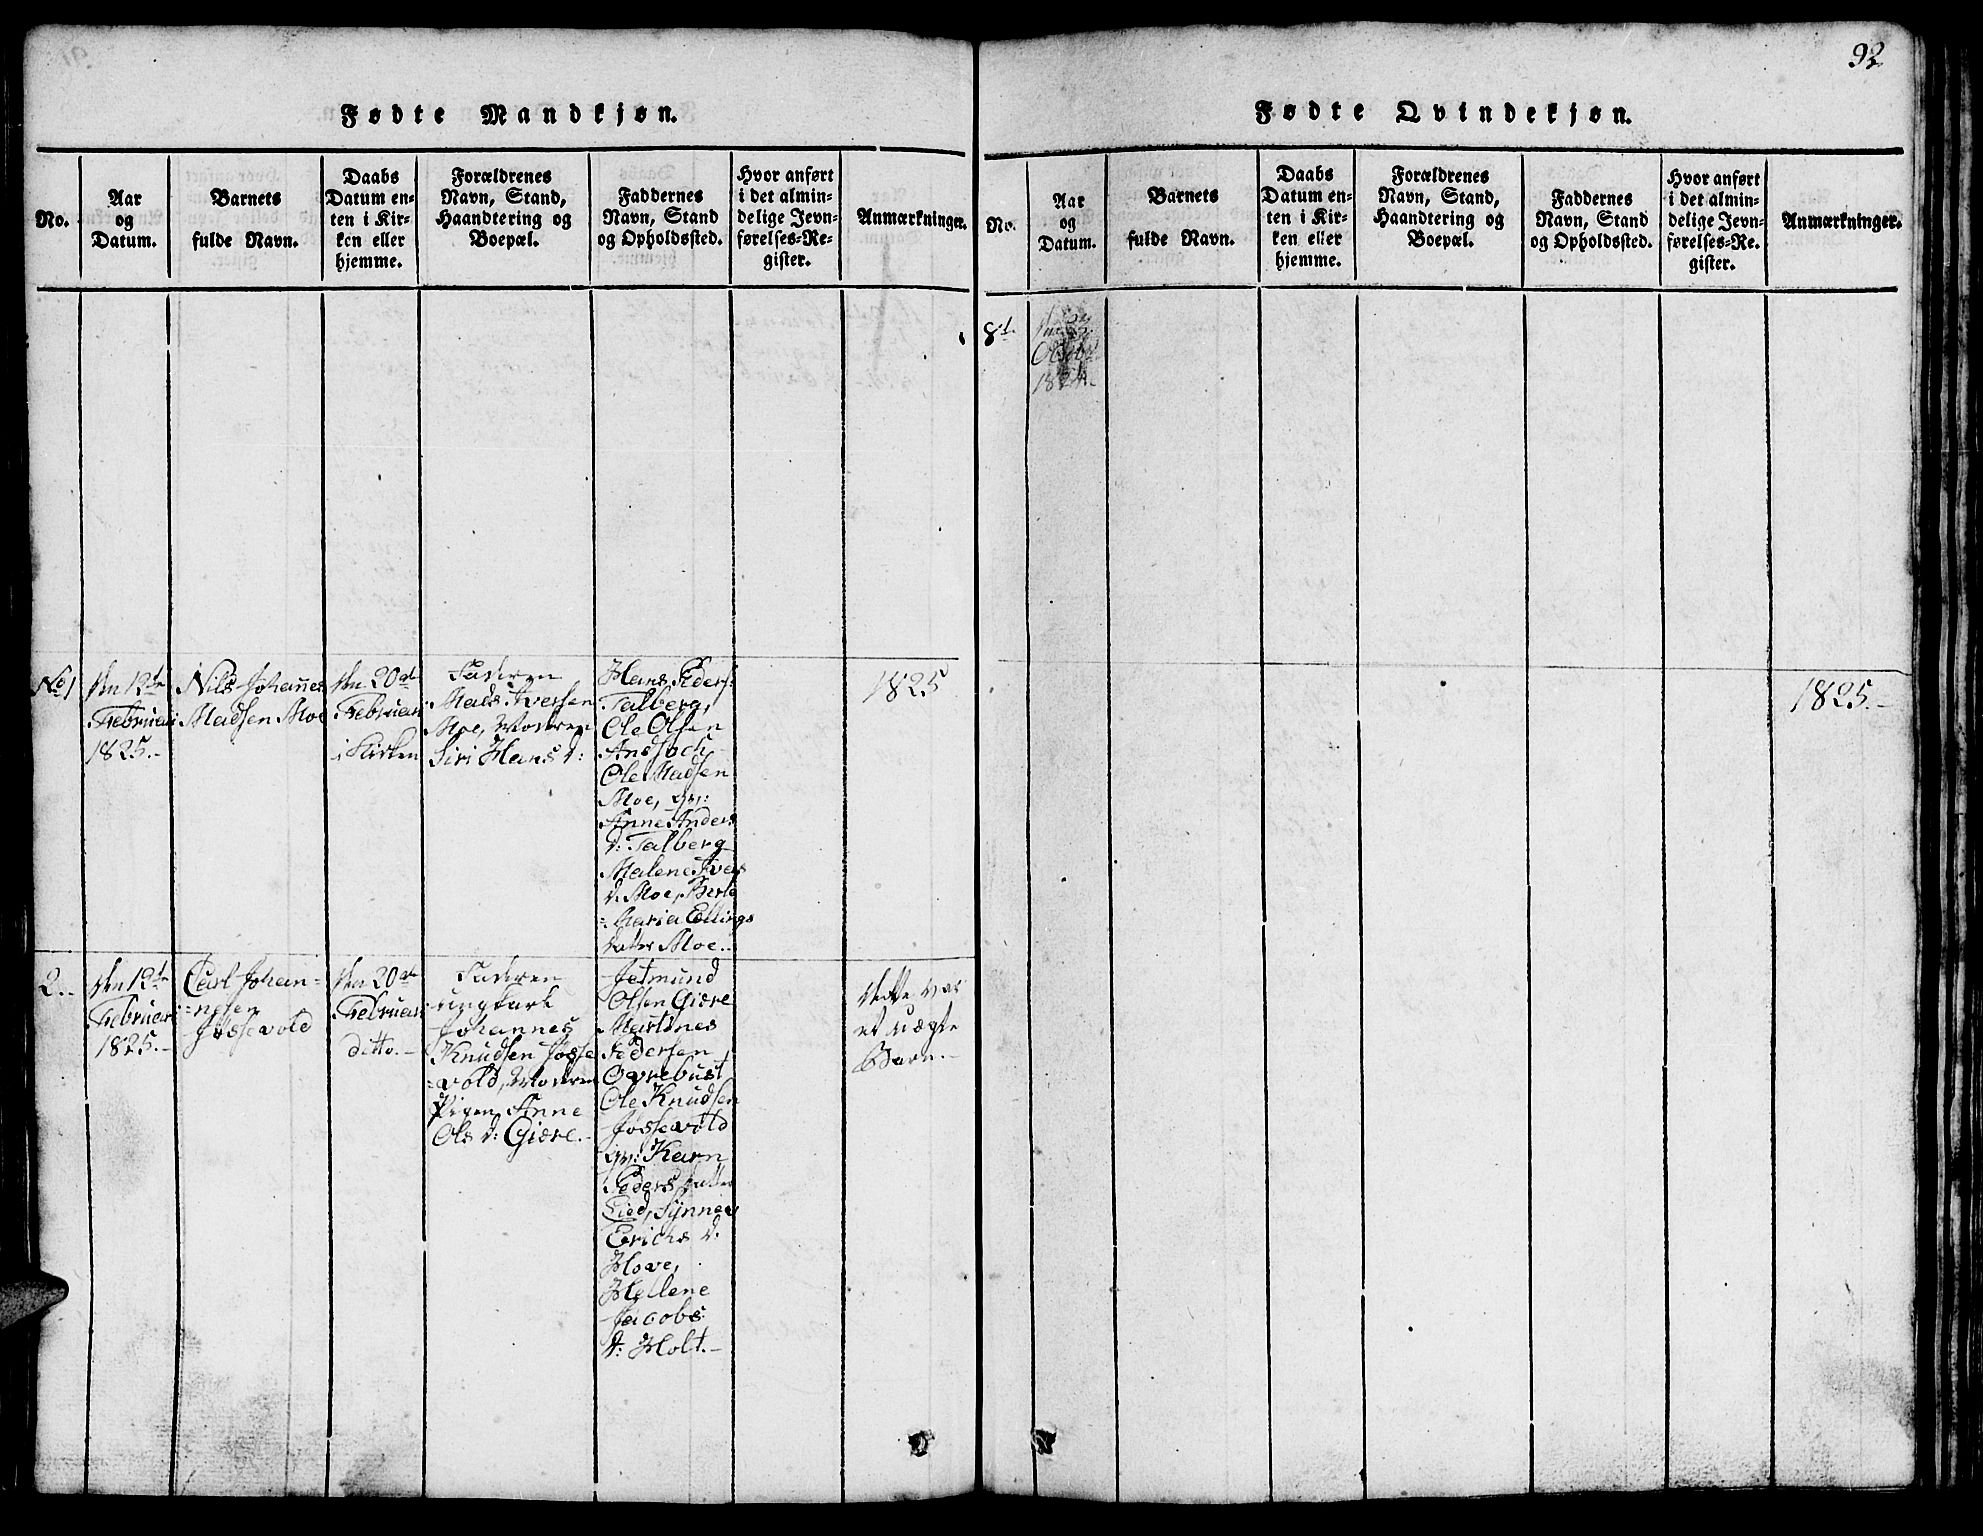 92
Fødte Mandkjøn.
No.
Aar
og
Datum.
Barnets
fulde Navn.
Daabs
Datum en-
ten i Kir-
ken eller
hjemme.
Forældrenes
Navn, Stand,
Haandtering og
Boepæl.
Faddernes
Navn, Stand
og Opholdssted.
Hvor anført
i det almin-
delige Jevn-
førelses-Re-
gister.
Anmærkninger.
No 1
den 12te
Februari
1825.-
Nils Johannes
Madsen Moe
den 20de
Februari
i Kirken
Faderen
Mads Iversen
Moe, Moderen
Siri Hans d:
Hans Peders:
Talberg,
Ole Olsen
Ole Madsen
Moe, qv:
Anne Anders
d: Talberg
Malene Ivers
d. Moe, Berte
=Maria Ellings
datter Moe..
1825
2..
den 12te
Februari
1825.-
Carl Johan=
=nesen
Jossevold
den 20de
Februari
ditto.-
Faderen
ungkarl
Johannes
Knudsen Josse
=vold, Moderen
Pigen Anne
Ols d: Giære.-
Jetmund
Olsen Giære
Martinus
Pedersen
Ovrebust
Ole Knudsen
Jossevold
qv: Karn
Peders datter
Lied, Synnev
Erichs d.
Hove,
Hellene
Jacobs
d: Holt.-
dette var
et uægte
Barn.-
Fødte Qvindekjøn.
No.
Aar
og
Datum.
Barnets
fulde Navn.
Daabs
Datum en-
ten i Kir-
ken eller
hjemme.
Forældrenes
Navn, Stand,
Haandtering og
Boepæl.
Faddernes
Navn, Stand
og Opholdssted.
Hvor anført
i det almin-
delige Jevn-
førelses-Re-
gister.
Anmærkninger.
8d.
1824.-
1825.-